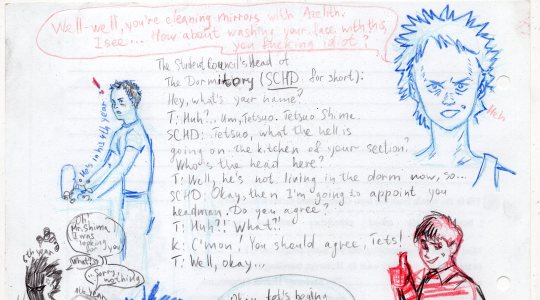 Well-well, you're cleaning mirrors with Azelith.
I see... How about washing your face with this,
you fucking idiot?
The Student Council's Head of
The Dormitory (SCHD for short):
Hey, what's your name?
T: Huh?.. Um, Tetsuo. Tetsuo Shima.
SCHD: Tetsuo, what the hell is
going on the kitchen of your section?
Who's the head here?
T: Well, he's not living in the dorm now, so...
SCHD: Okay, then I'm going to appoint you
headman. Do you agree?
T: Huh?! What?!
K: C'mon! You should agree, Tets!
T: Well, okay...
Heh
!
He's in his 4th year
Oh!
Mr. Shima!
I was
looking for
you!
What?
Sorry,
nothing
6th year
4th year
Okay, let's begin